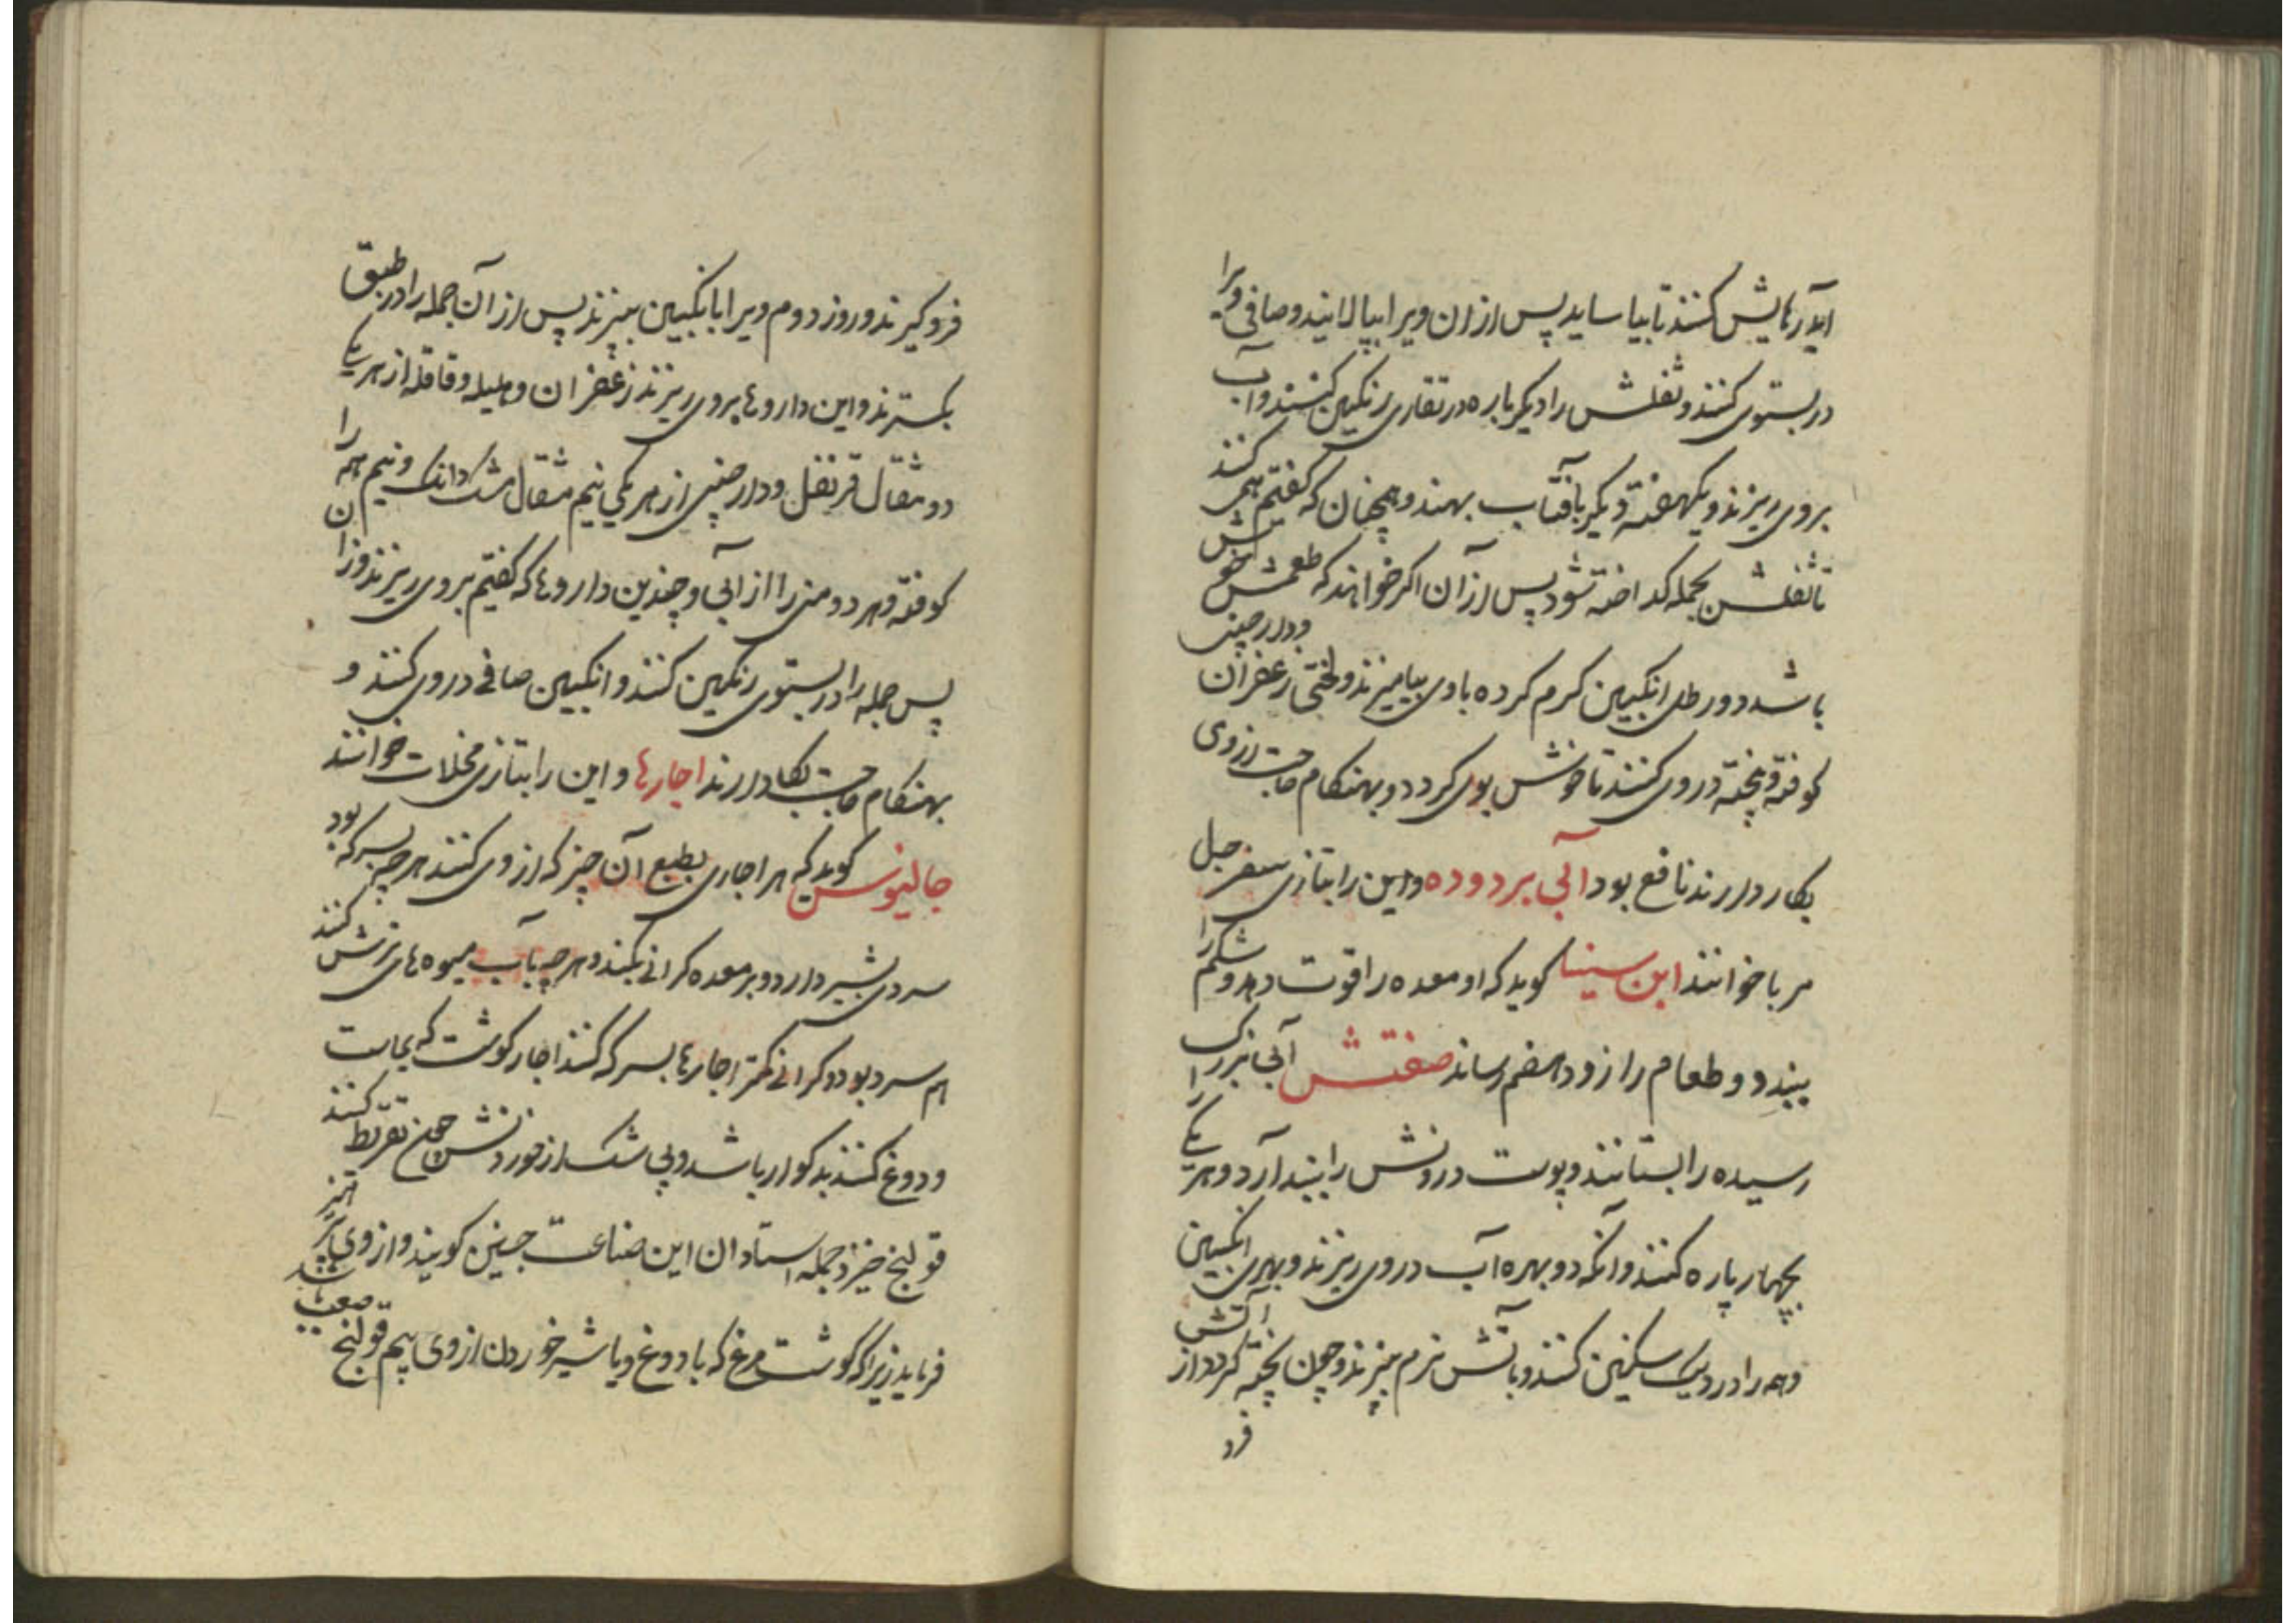 آید رهایش کنند تا بیاساید پس از ان ویرا بپالانید و صافی ویرا
در بستوی کنند و ثفلش را دیگر باره در تغاری رنگین کنند و آب
بروی ریزند و یکهفته دیگر بافتاب بهند و همچنان که گفتم همی کنند
تا ثفلش بجمله گداخته شود پس از آن اگر خواهند که طعمش خوش
باشد دو رطل انگبین گرم کرده با وی بیامیزند و لختی زعفران و دارچینی
کوفته و بیخته در وی کنند تا خوش بوی گردد و بهنگام حاجت از وی
بکار دارند نافع بود آبی برووده و این را بتازی سفرجل
مربا خوانند ابن سینا گوید که او معده را قوت دهد و شکم را
ببندد و طعام را زود هضم رساند صفتش آبی بزرگ
رسیده را بستانند و پوست و درونش را بیندازد و هر یکی را
بچهار پاره کنند و آنگه دو بهره آب در وی ریزند و بهری انگبین
و همه را در دیک سنگین کنند و بآتش نرم بپزند و چون پخته گردد از آتش
فرو
فرو گیرند و روز دوم ویرا بانگبین بپزند پس از آن جمله را در طبق
بگسترند و این داروها بروی ریزند زعفران و هلیله و قاقله از هر یکی
دو مثقال قرنفل و دارچینی از هر یکی نیم مثقال مشک دانگ و نیم همه را
کوفته و هر دو منی را از آبی و چندین داروها که گفتیم بروی ریزند وزان
پس جمله را در بستوی رنگین کنند و انگبین صافی در وی کنند و
بهنگام حاجت بکار دارند اجارها و این را بتازی مخللات خوانند
جالینوس گوید که هر اجاری بطبع آن چیز که از وی کنند هر چه بسرکه بود
سردی بیشتر دارد و بر معده گرانی بکند و هر چه بآب میوه های ترش کنند
هم سرد بود و گرانی کمتر اجارها بسرکه کنند اجار گوشت که بماست
و دوغ کنند بد گوار باشد و بی شک از خوردنش چون تفریط کنند
قولنج خیزد جمله استادان این صناعت چنین گویند و از وی پرهیز
فرماید زیرا که گوشت مرغ که با دوغ و یا شیر خوردن از وی بیم قولنج صعب باشد